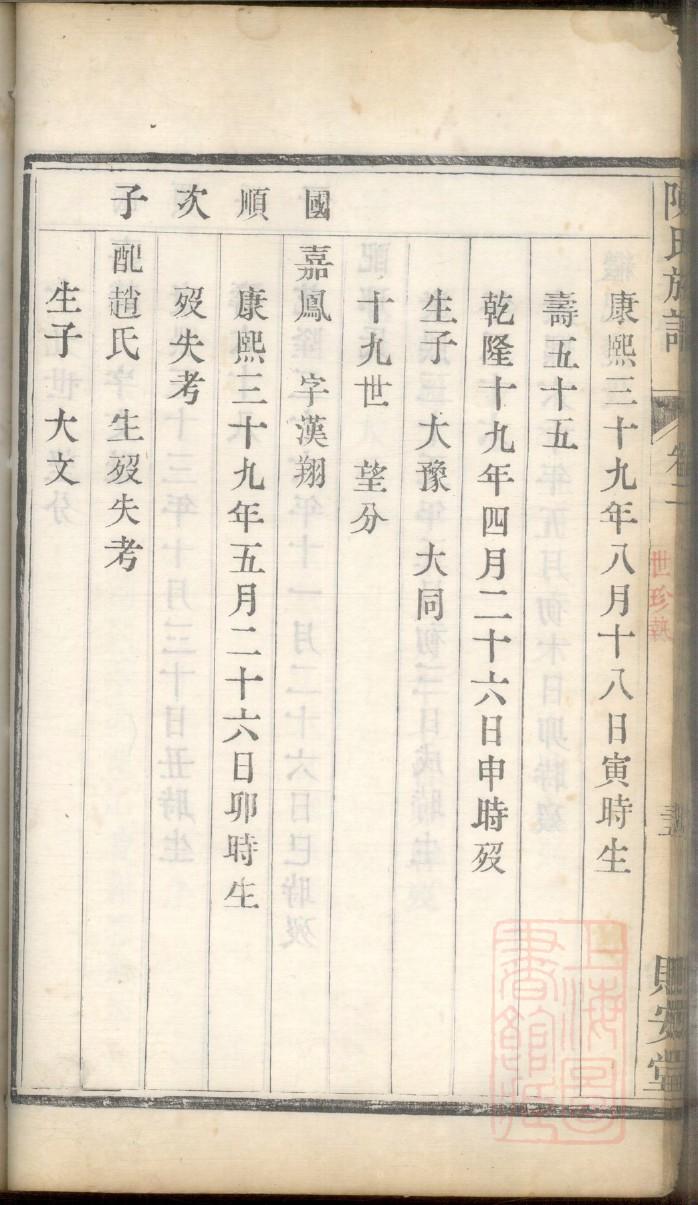 陳氏族譜
卷二
世珍執
貽安堂
康熙三十九年八月十八日寅時生
壽五十五
乾隆十九年四月二十六日申時歿
生子 大豫 大同
十九世 望分
國順次子
嘉鳳 字漢翔
康熙三十九年五月二十六日卯時生
歿失考
配趙氏 生歿失考
生子 大文
上海圖
書館藏